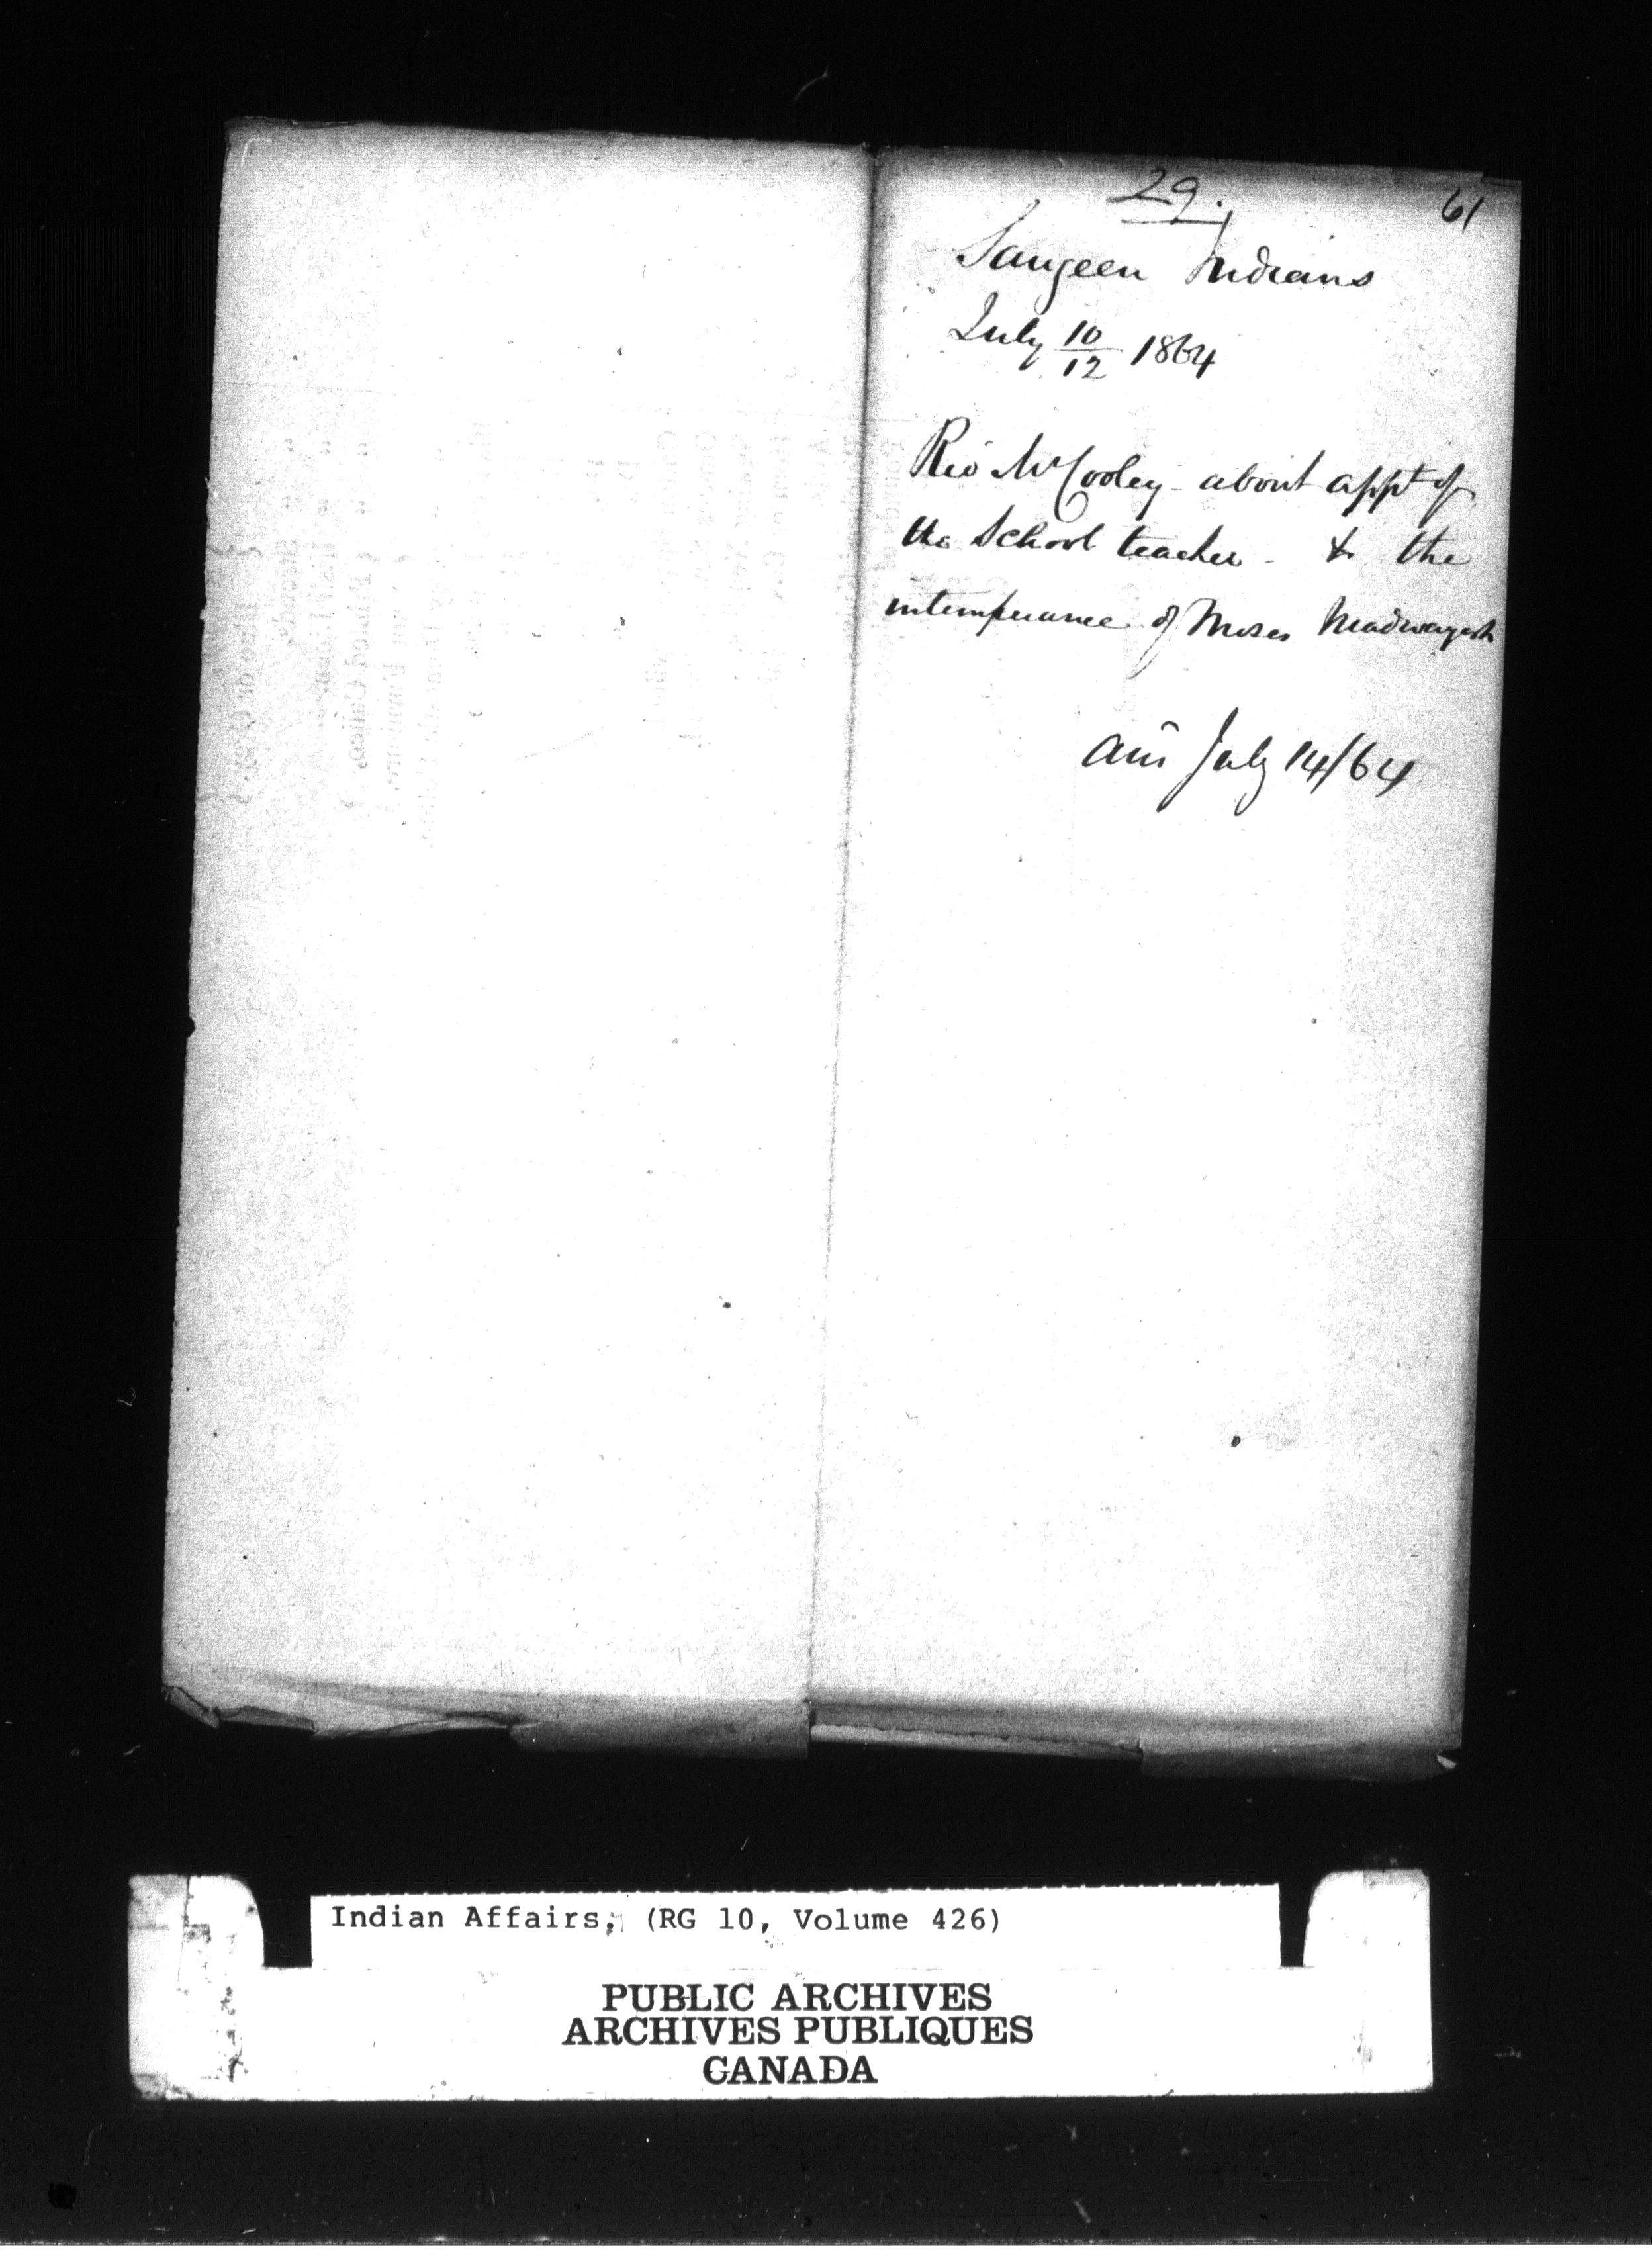 29.
61
Saugeen Indians
July 10/12 1864
Rev Mr Cooley about appt of
the School teacher - & the
intemperance of Moses Madwayosh
ans July 14/64
Indian Affairs, (RG 10, Volume 426)
PUBLIC ARCHIVES
ARCHIVES PUBLIQUES
CANADA